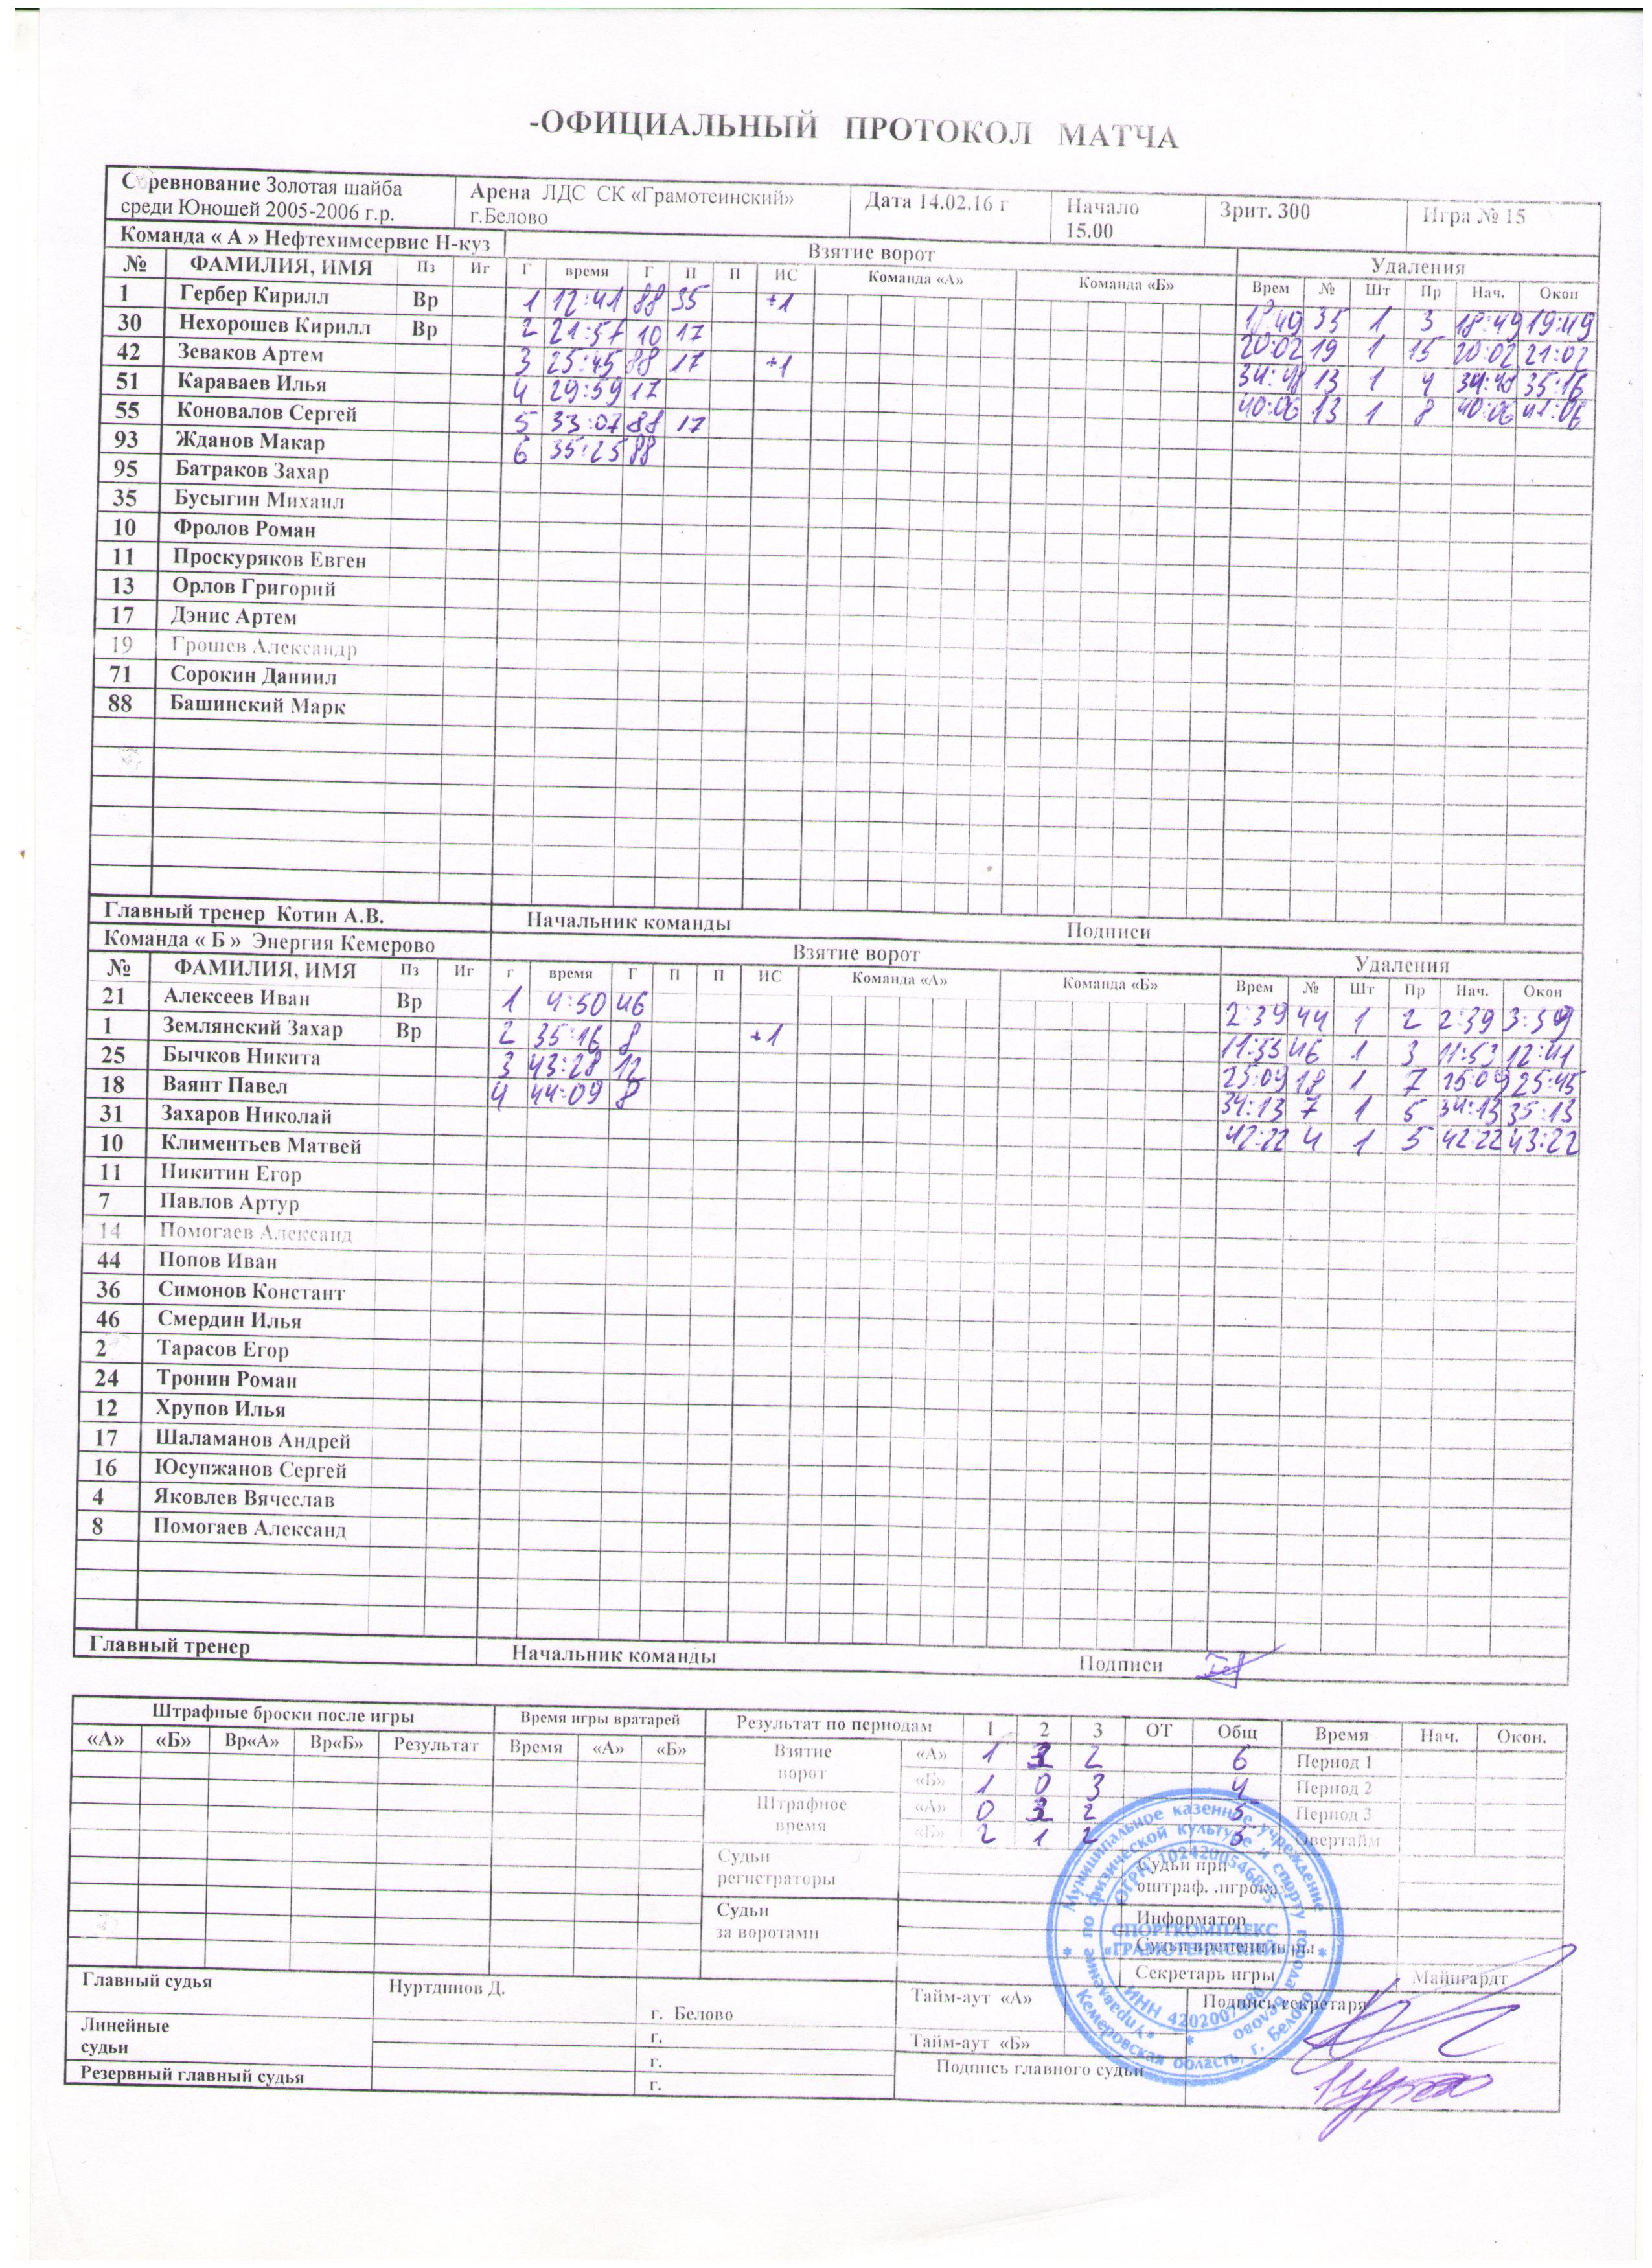 -ОФИЦИАЛЬНЫЙ ПРОТОКОЛ МАТЧА
Соревнование Золотая шайба среди Юношей 2005-2006 г.р. Арена ЛДС СК «Грамотеинский» г.Белово Дата 14.02.16 г Начало 15.00 Зрит. 300 Игра № 15
Команда « А » Нефтехимсервис Н-куз Взятие ворот Удаления
№ ФАМИЛИЯ, ИМЯ Пз Иг Г время Г П П ИС Команда «А» Команда «Б» Врем № Шт Пр Нач. Окон
1 Гербер Кирилл Вр 1 12:41 88 35 +1 18:49 35 1 3 18:49 19:49
30 Нехорошев Кирилл Вр 2 21:57 10 17 20:02 19 1 15 20:02 21:02
42 Зеваков Артем 3 25:45 88 17 +1 34:48 13 1 4 34:48 35:16
51 Караваев Илья 4 29:59 17 40:06 13 1 8 40:06 41:06
55 Коновалов Сергей 5 33:07 88 17
93 Жданов Макар 6 35:25 88
95 Батраков Захар
35 Бусыгин Михаил
10 Фролов Роман
11 Проскуряков Евген
13 Орлов Григорий
17 Дэнис Артем
19 Грошев Александр
71 Сорокин Даниил
88 Башинский Марк
Главный тренер Котин А.В. Начальник команды Подписи
Команда « Б » Энергия Кемерово Взятие ворот Удаления
№ ФАМИЛИЯ, ИМЯ Пз Иг г время Г П П ИС Команда «А» Команда «Б» Врем № Шт Пр Нач. Окон
21 Алексеев Иван Вр 1 4:50 46 2:39 44 1 2 2:39 3:39
1 Землянский Захар Вр 2 35:16 8 +1 11:53 46 1 3 11:53 12:41
25 Бычков Никита 3 43:28 12 25:09 18 1 7 25:09 25:45
18 Ваянт Павел 4 44:09 8 34:13 7 1 5 34:13 35:13
31 Захаров Николай 42:22 4 1 5 42:22 43:22
10 Климентьев Матвей
11 Никитин Егор
7 Павлов Артур
14 Помогаев Александ
44 Попов Иван
36 Симонов Констант
46 Смердин Илья
2 Тарасов Егор
24 Тронин Роман
12 Хрупов Илья
17 Шаламанов Андрей
16 Юсупжанов Сергей
4 Яковлев Вячеслав
8 Помогаев Александ
Главный тренер Начальник команды Подписи
Штрафные броски после игры Время игры вратарей Результат по периодам 1 2 3 ОТ Общ Время Нач. Окон.
«А» «Б» Вр«А» Вр«Б» Результат Время «А» «Б» Взятие ворот «А» 1 3 2 6 Период 1
«Б» 1 0 3 4 Период 2
Штрафное время «А» 0 3 2 5 Период 3
«Б» 2 1 2 5 Овертайм
Судьи регистраторы Судьи при оштраф. .игрока
Судьи за воротами Информатор
Судьи времени игры
Секретарь игры Майнгардт
Главный судья Нуртдинов Д. г. Белово Тайм-аут «А» Подпись секретаря
Линейные судьи г. Тайм-аут «Б»
г. Подпись главного судьи
Резервный главный судья г.
Муниципальное казенное учреждение
Управление по физической культуре и спорту города Белово
СПОРТКОМПЛЕКС
«ГРАМОТЕИНСКИЙ»
Кемеровская область, г. Белово